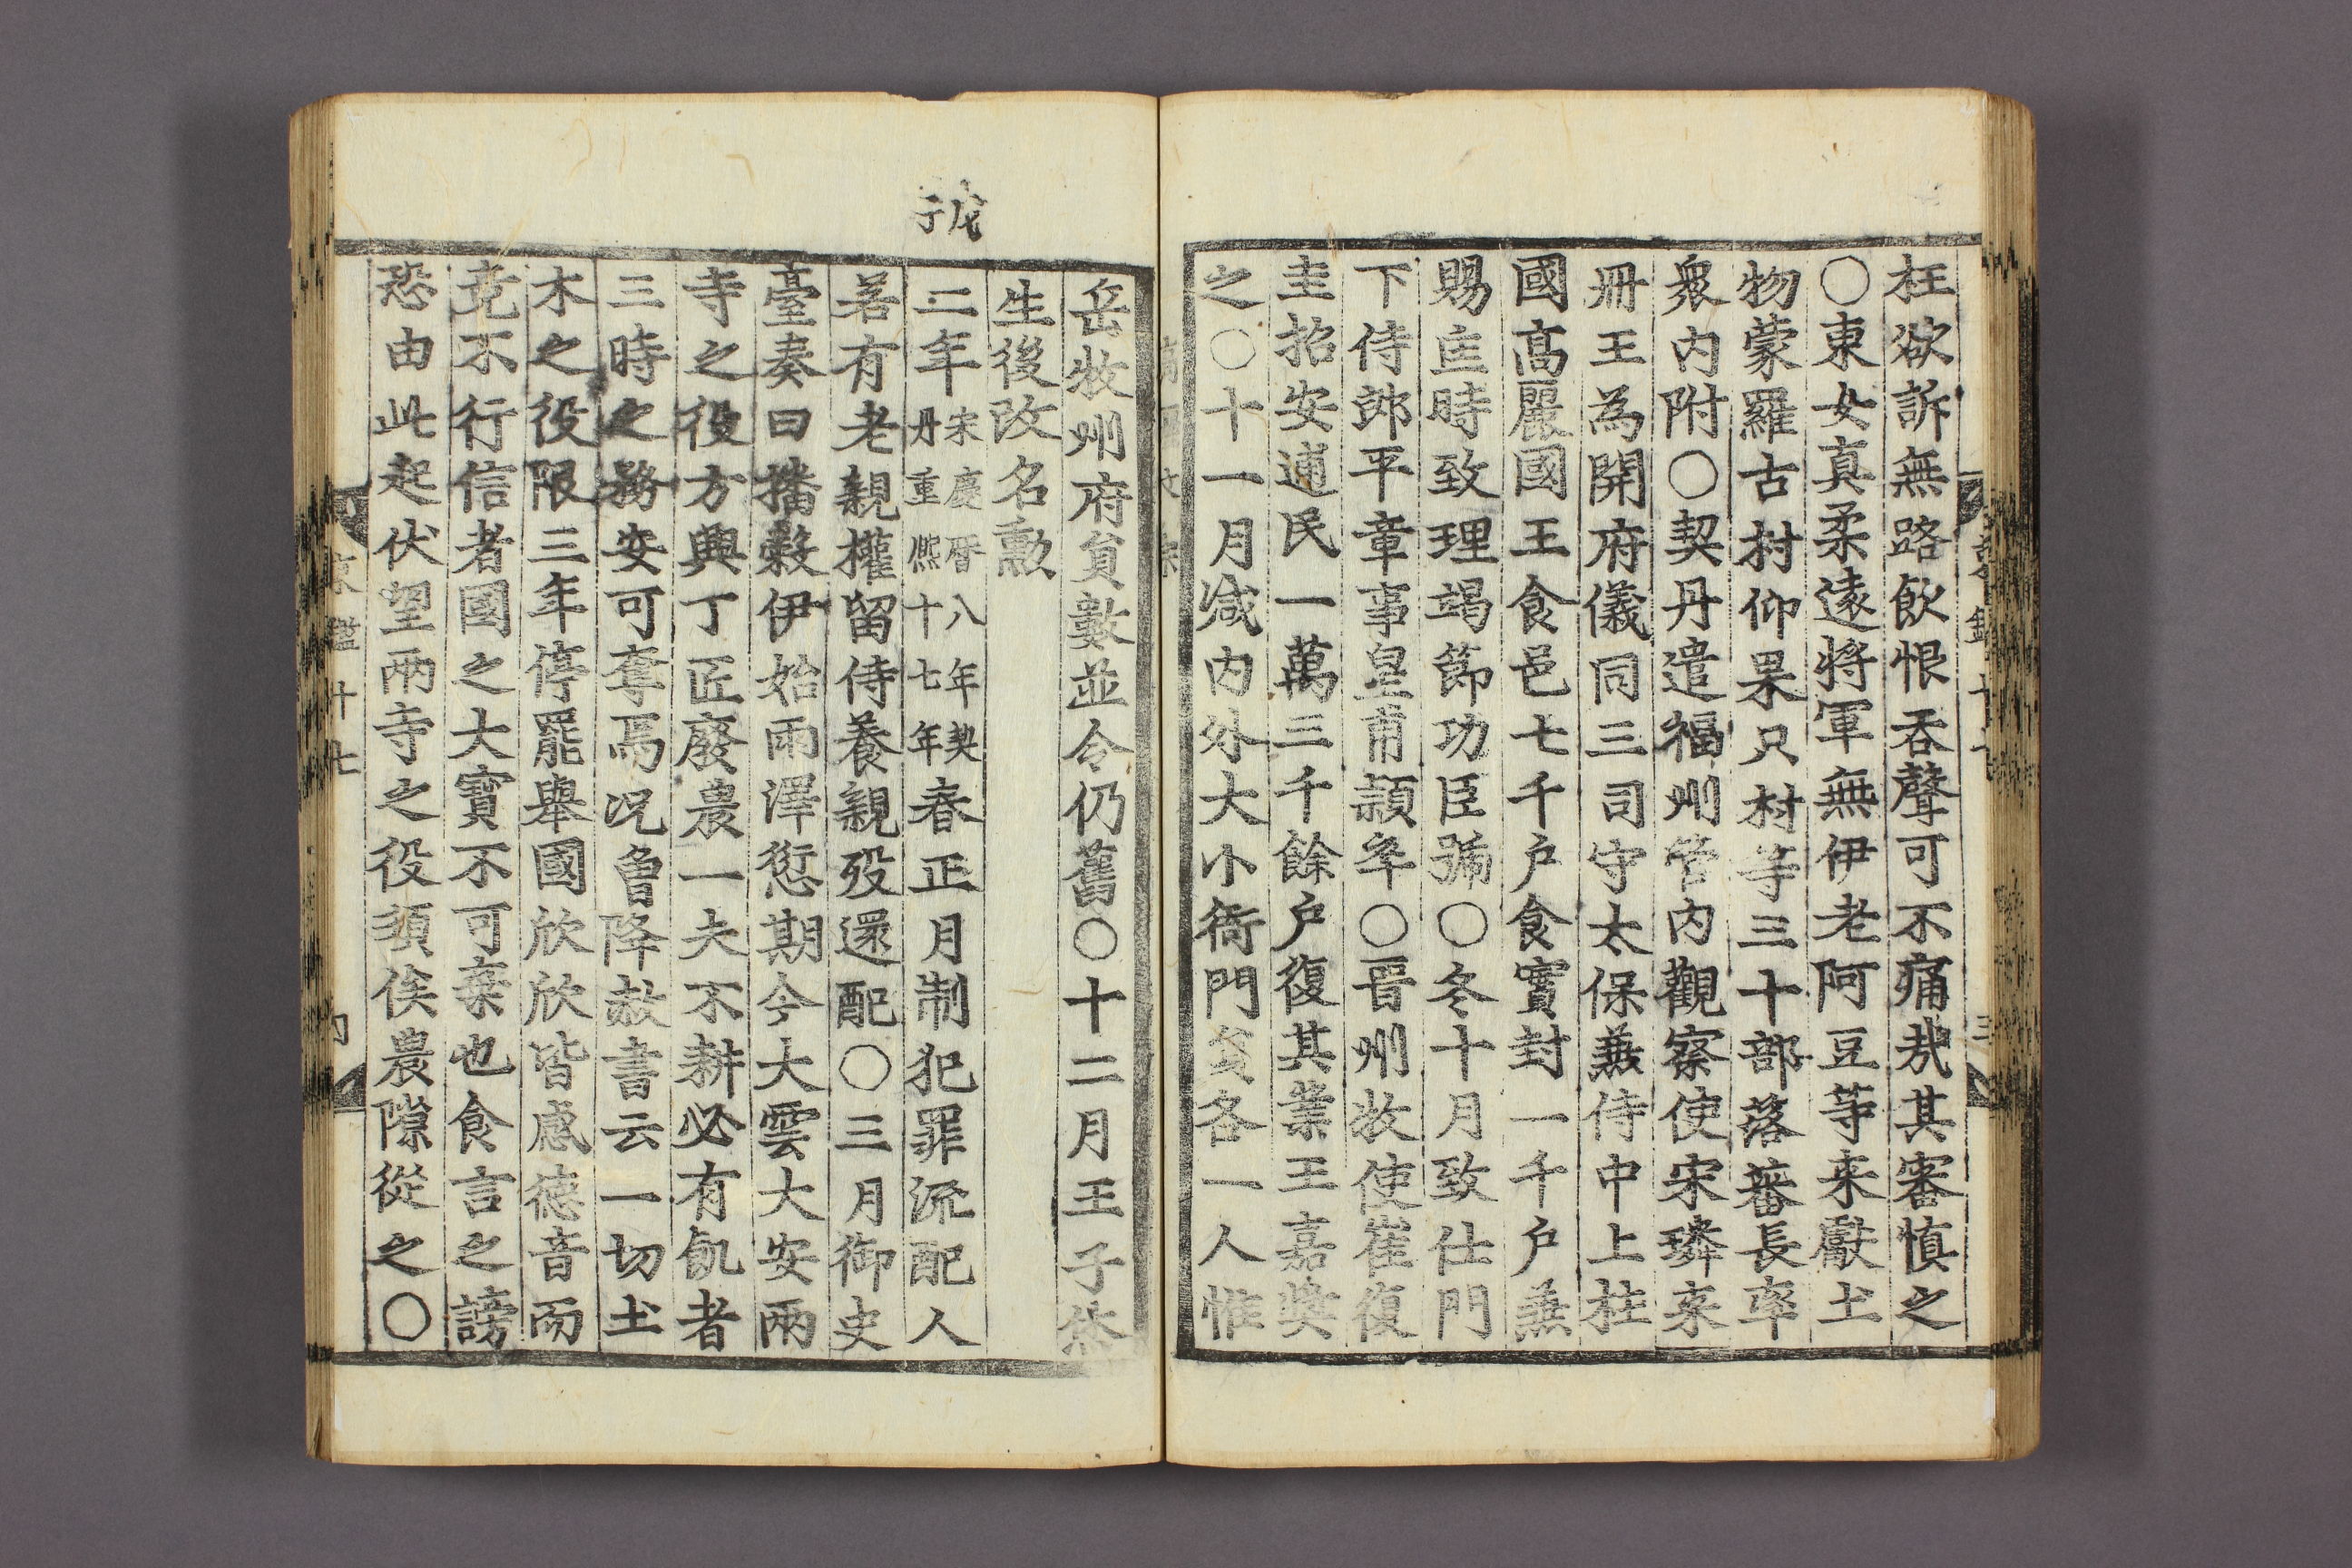 枉欲訴無路飮恨吞聲可不痛哉其審愼之
○東女真柔遠將軍無伊老阿豆等来獻土
物蒙羅古村仰果只村等三十部落蕃長率
衆內附○契丹遣福州管內觀察使宋璘来
冊王為開府儀同三司守太保兼侍中上柱
國髙麗國王食邑七千户食實封一千户兼
賜匡時致理竭節功臣號○冬十月致仕門
下侍郎平章事皇甫頴卒○晋州牧使崔復
圭招安逋民一萬三千餘户復其業王嘉奬
之○十一月減內外大小衙門員各一人惟
岳牧州府負數並令仍舊○十二月王子烋
生後改名勲
戊子
二年宋慶曆八年契丹重熈十七年春正月制犯罪流配人
若有老親權留侍養親歿還配○三月御史
臺奏曰播糓伊始雨澤愆期今大雲大安兩
寺之役方興丁匠廢農一夫不耕必有飢者
三時之務安可奪焉况曾降赦書云一切土
木之役限三年停罷舉國欣欣皆感德音而
竟不行信者國之大寶不可棄也食言之謗
恐由此起伏望兩寺之役須俟農隙從之○
鑑十七